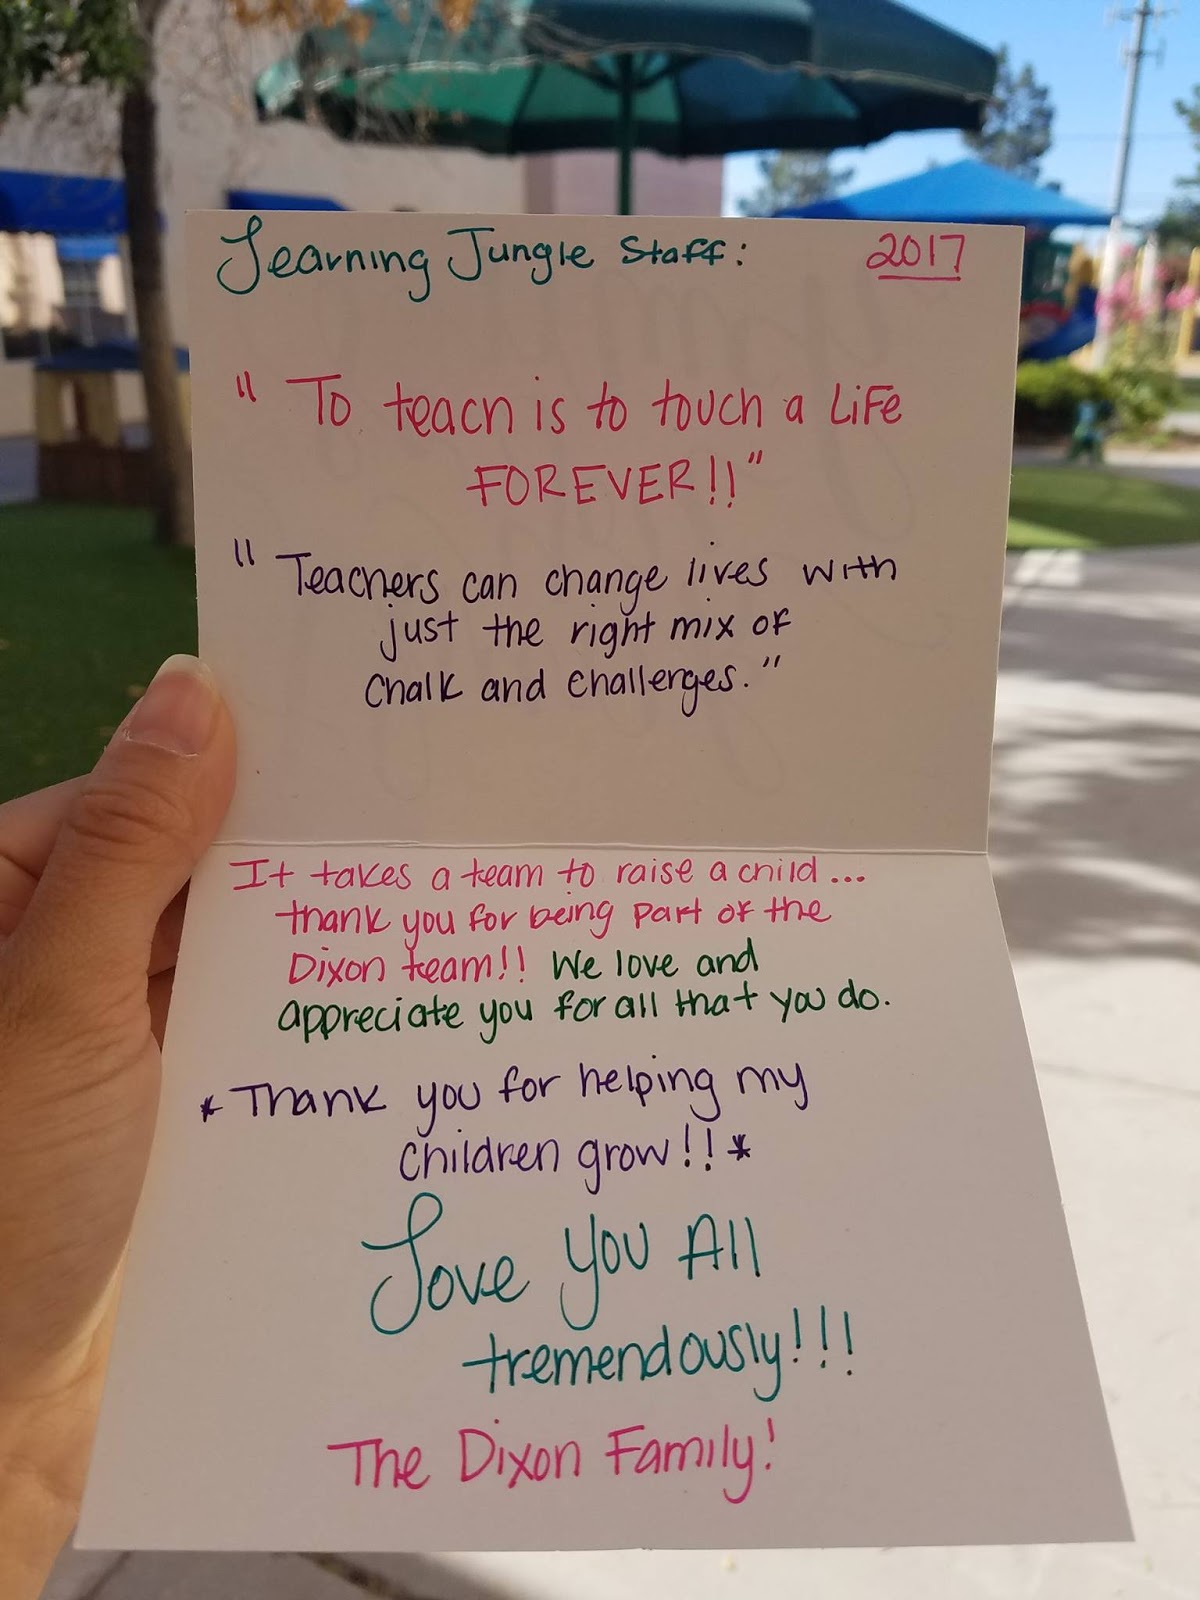 Learning Jungle Staff: 2017
" To teach is to touch a LiFe
FOREVER!!"
" Teachers can change lives with
just the right mix of
Chalk and challenges."
It takes a team to raise a child...
thank you for being part of the
Dixon team!! We love and
appreciate you for all that you do.
* Thank you for helping my
children grow!! *
Love you All
tremendously!!!
The Dixon Family!